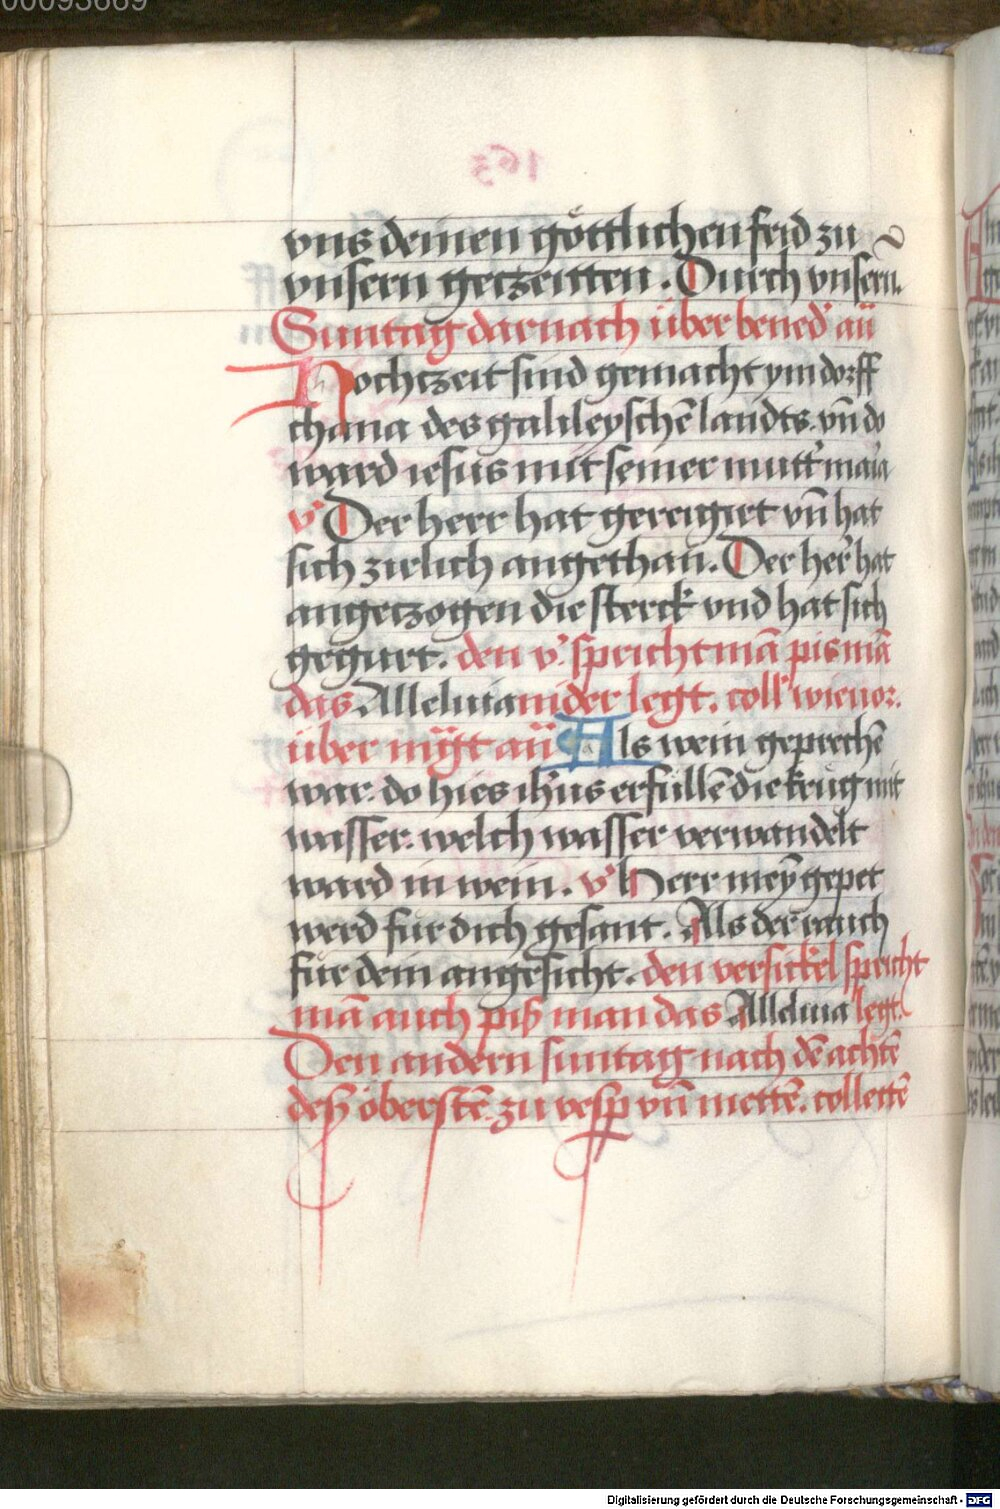 00093669
vns deinen göttlichen frid zu
vnsern getzeitten. Durch vnsern̄.
Suntag darnach über bened' an̄
Hochtzeit sind gemacht ym dorff
chana des galileyschē landts. vn̄ do
ward iesus mit seiner mutt' maīa
v' Der herr hat gereigirt vn̄ hat
sich zirlich angethan. Der her' hat
angetzogen die sterck vnd hat sich
gegürt. den v'. spricht mā pis mā
das Alleluia nider legt. coll' wie uor.
über mgt an̄ Als wein geprechē
war. do hies ih̄us erfüllē die krüg mit
wasser. welch wasser verwandelt
ward in wein. v' Herr meȳ gepet
werd für dich gesant. Als der rauch
für dein angesicht. den versickel spricht
mā auch piß man das Alleluia legt.
Den andern suntag nach dē achtē
deß öberstē. zu vesp̄ vn̄ mettē. collectē
Digitalisierung gefördert durch die Deutsche Forschungsgemeinschaft - DFG